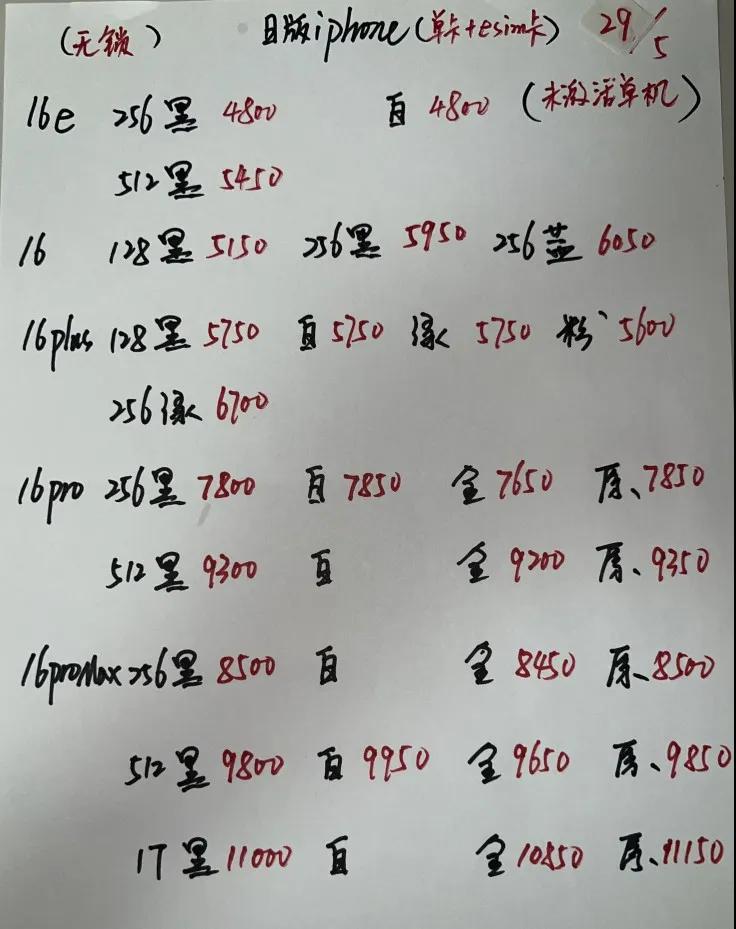 (无锁) 日版iphone(单卡+esim卡) 29/5
16e 256黑 4800 白 4800 (未激活单机)
512黑 5450
16 128黑 5150 256黑 5950 256蓝 6050
16plus 128黑 5750 白 5750 绿 5750 粉 5600
256绿 6700
16pro 256黑 7800 白 7850 金 7650 原、7850
512黑 9300 白 金 9200 原、9350
16proMax 256黑 8500 白 金 8450 原、8500
512黑 9800 白 9950 金 9650 原、9850
1T黑 11000 白 金 10850 原、11150